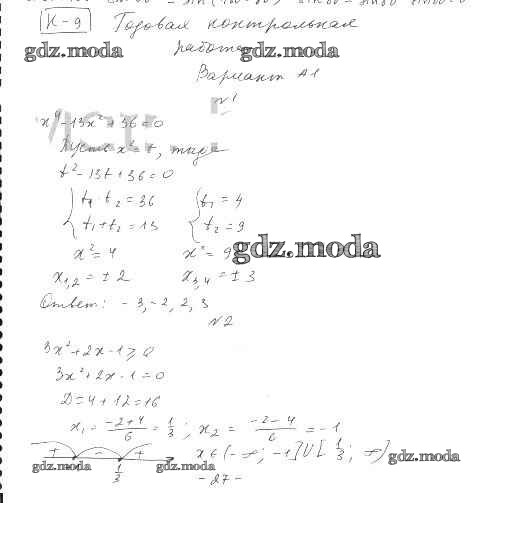 К-9 Годовая контрольная
gdz.moda работа gdz.moda
Вариант А1
№1
x⁴-13x²+36=0
Пусть x²=t, тогда
t²-13t+36=0
{t₁·t₂=36 {t₁=4
{t₁+t₂=13 {t₂=9
x²=4 x²=9 gdz.moda
x₁,₂=±2 x₃,₄=±3
Ответ: -3,-2, 2, 3
№2
3x²+2x-1≥0
3x²+2x-1=0
D=4+12=16
x₁=(-2+4)/6=1/3; x₂=(-2-4)/6=-1
+ - + x∈(-∞;-1]U[1/3;∞)
gdz.moda gdz.moda gdz.moda
1/3
-27-